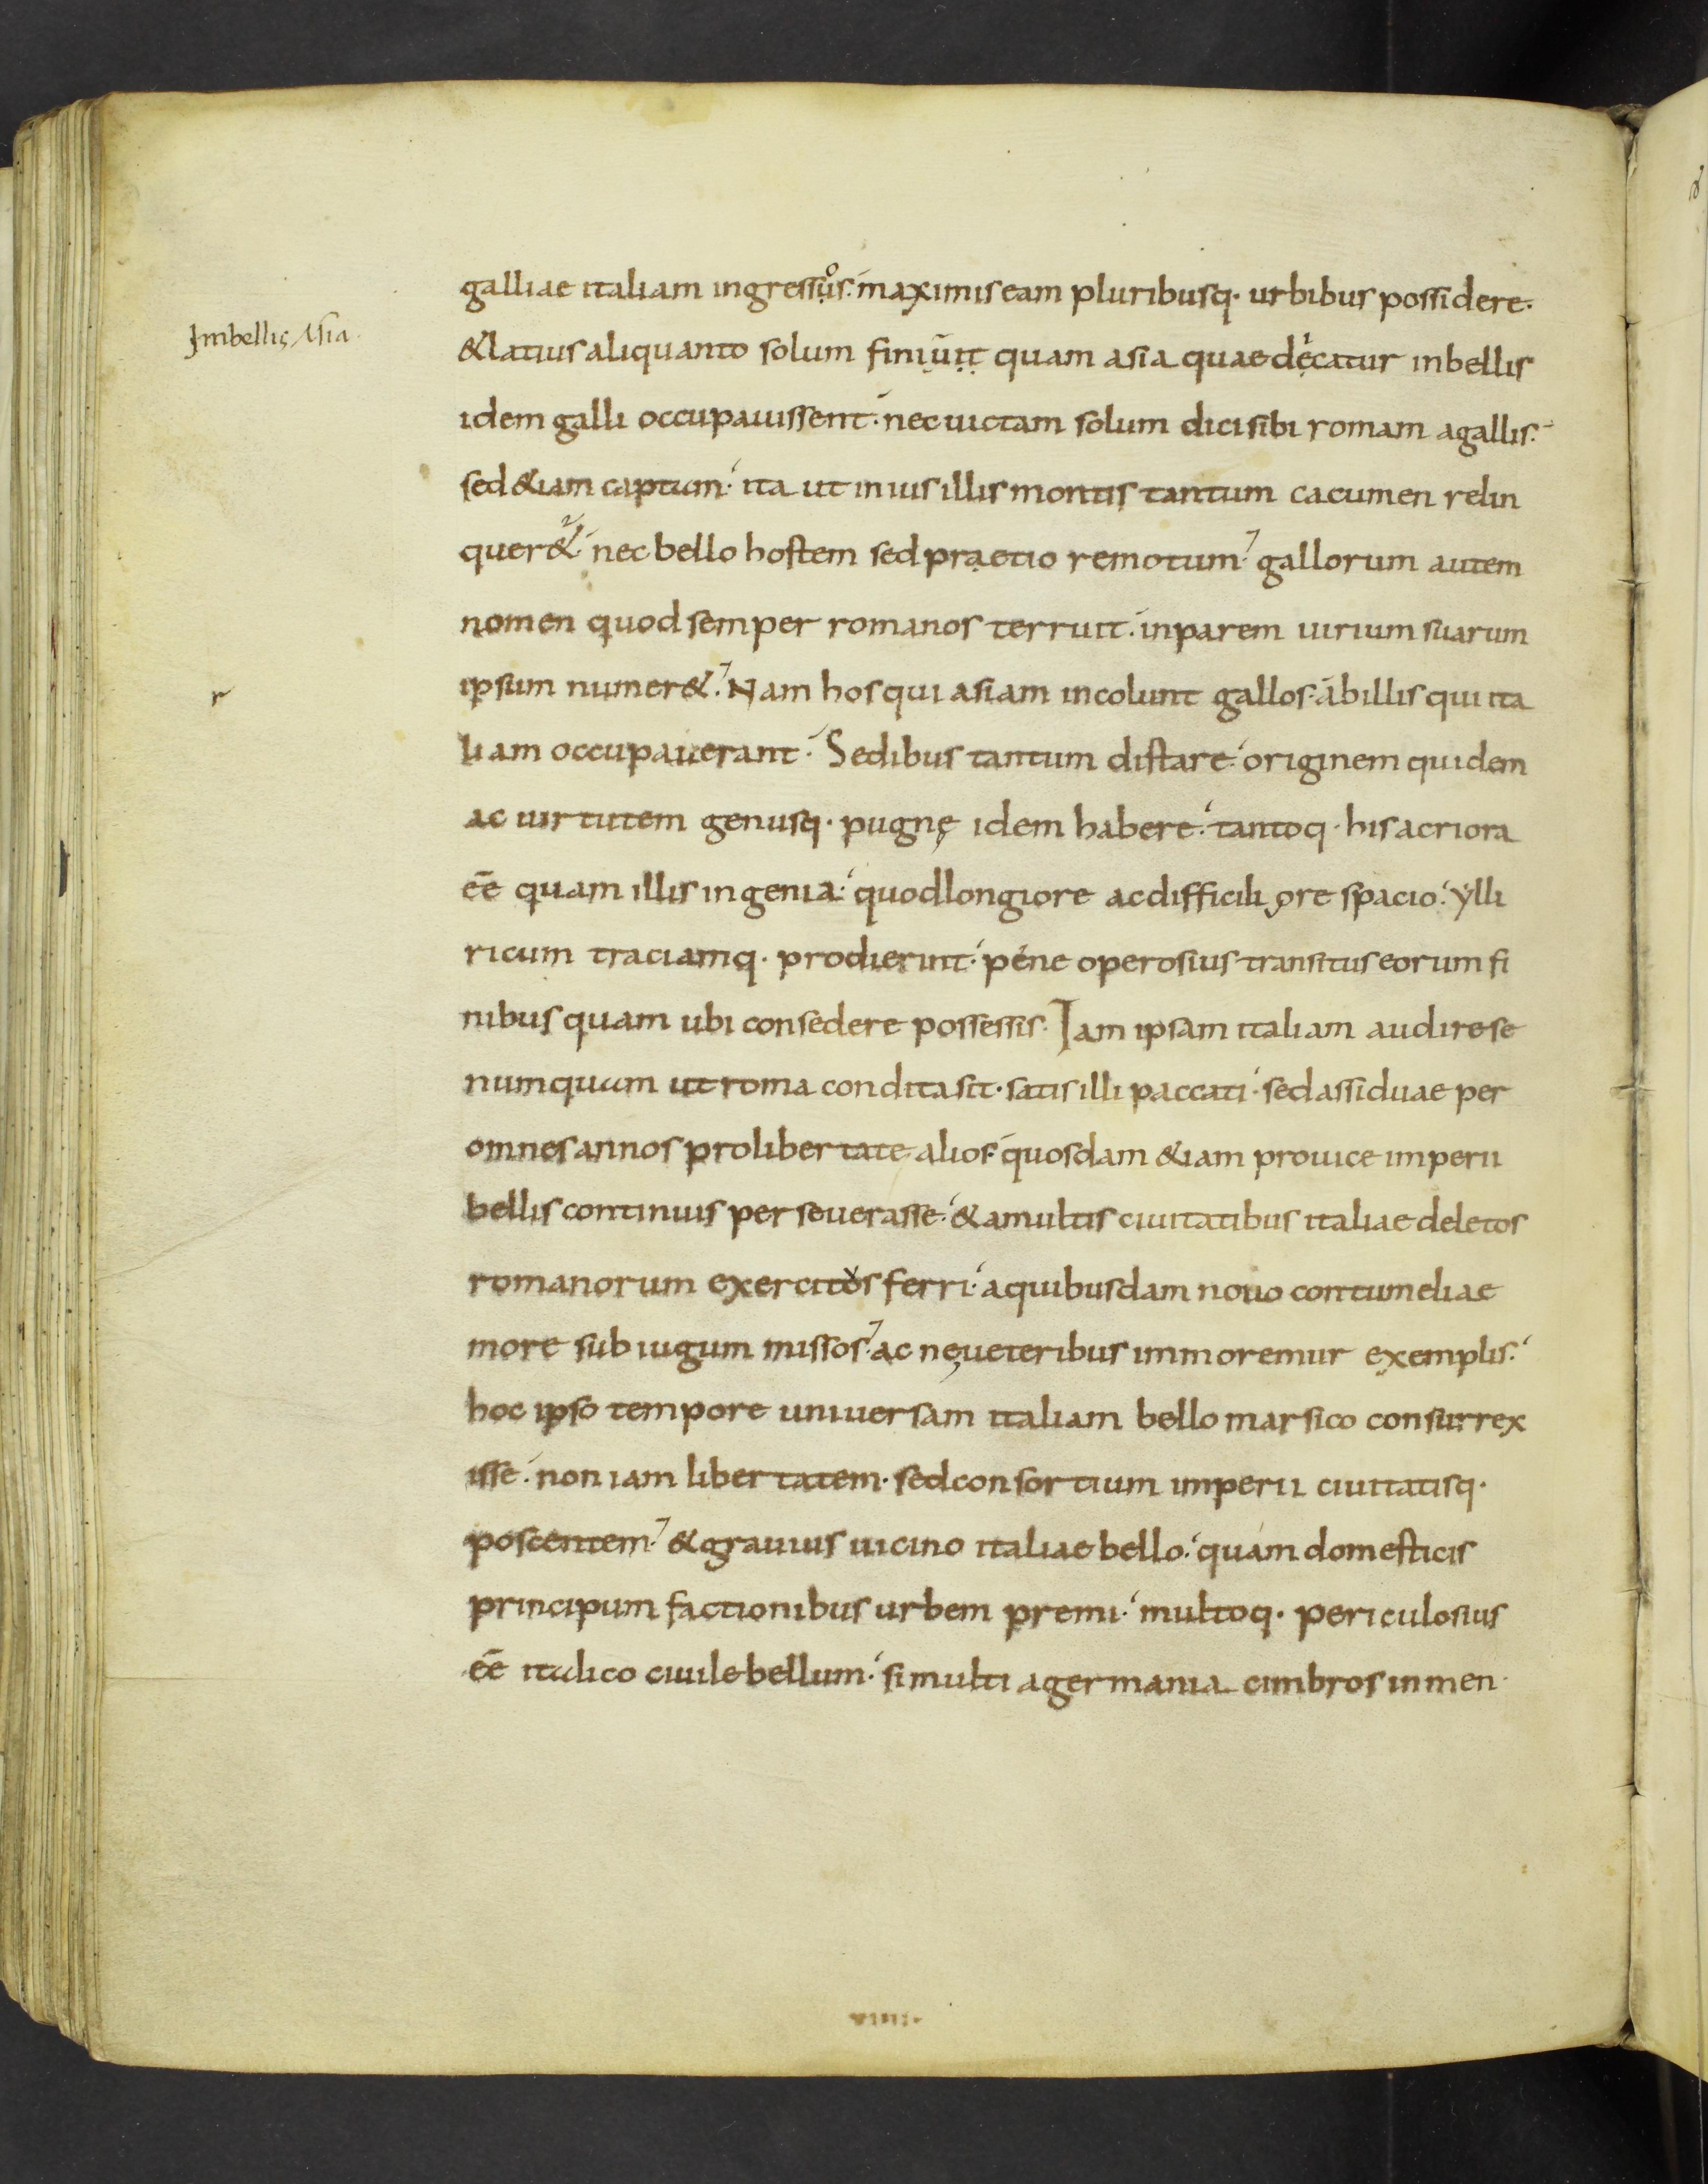 Imbellis Asia.
galliae italiam ingressůs. maximis eam pluribusq. urbibus possidere.
& latius aliquanto solum finiūit quam asia quae décatur inbellis
idem galli occupauissent. nec uictam solum dici sibi romam agallis.
sed &iam captum. ita ut in ius illis montis tantum cacumen relin
quer& nec bello hostem sed praetio remotum. gallorum autem
nomen quod semper romanos terruit. inparem uirium suarum
ipsum numer&. Nam hos qui asiam incolunt gallos. ab illis qui ita
r
liam occupauerant. Sedibus tantum distare. originem quidem
ac uirtutem genusq. pugnę idem habere. tantoq. his acriora
eē quam illis ingenia. quod longiore ac difficiliore spacio. ẏlli
ricum traciamq. prodierint. péne operosius transitus eorum fi
nibus quam ubi consedere possessis. Iam ipsam italiam audire se
numquam ut roma condita sit. satis illi paccati. sed assiduae per
omnes annos pro libertate alios. quosdam &iam prouice imperii
bellis continuis perseuerasse. & amultis ciuitatibus italiae deletos
romanorum exercitos ferri. aquibusdam nouo contumeliae
more sub iugum missos. ac nę ueteribus immoremur exemplis.
hoc ipso tempore uniuersam italiam bello marsico consurrex
isse. non iam libertatem. sed consortium imperii ciuitatisq.
poscentem. & grauius uicino italiae bello. quám domesticis
principum factionibus urbem premi. multoq. periculosius
eē italico ciuile bellum. simulti agermania cimbros inmen
VIIII.